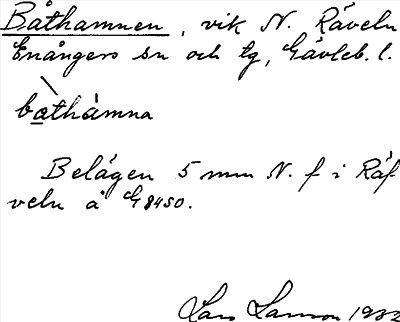 Båthamnen, vik N. Räveln
Enångers sn och tg, Gävleb. l.
bathàmna
Belägen 5 mm N. f i Räf
veln å G 8450.
Lars Larsson 1932